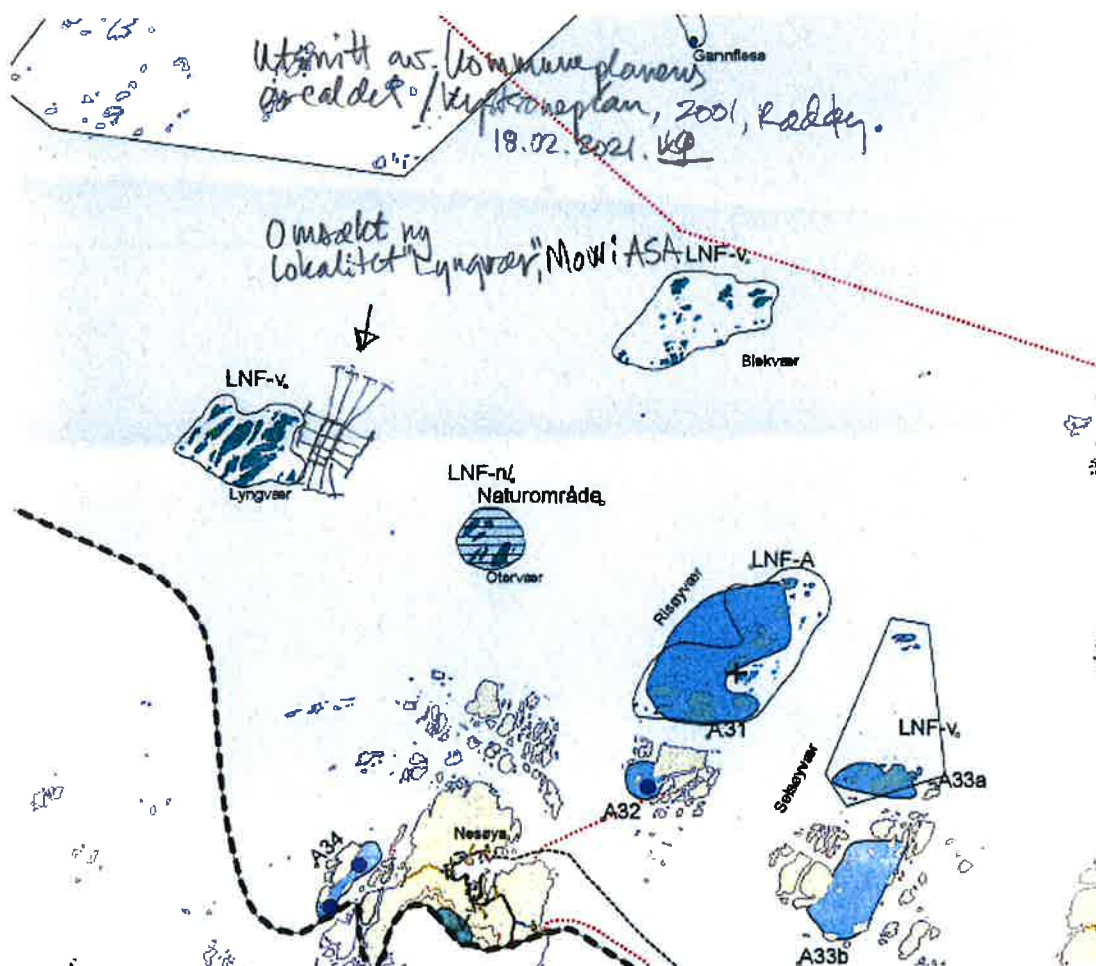 Gannflesa
Utsnitt av kommuneplanens
arealdel / kystsoneplan, 2001, Rødøy.
18.02.2021.
Omsøkt ny
lokalitet "Lyngvær", Mowi ASA
LNF-v.
Blekvær
LNF-v.
Lyngvær
LNF-n/.
Naturområde
Otervær
LNF-A
Risøyvær
A31
LNF-v.
Selsøyvær
A33a
A32
Nesøya
A34
A33b